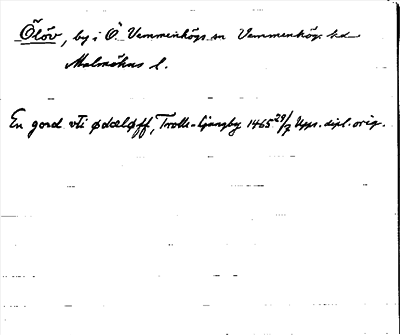 Ölöv, by i Ö. Vemmenhögs sn Vemmenhögs hd
Malmöhus l.
En gord vti ødæløff, Trolle-Ljungby 1465 29/7 Upps. dipl. orig.